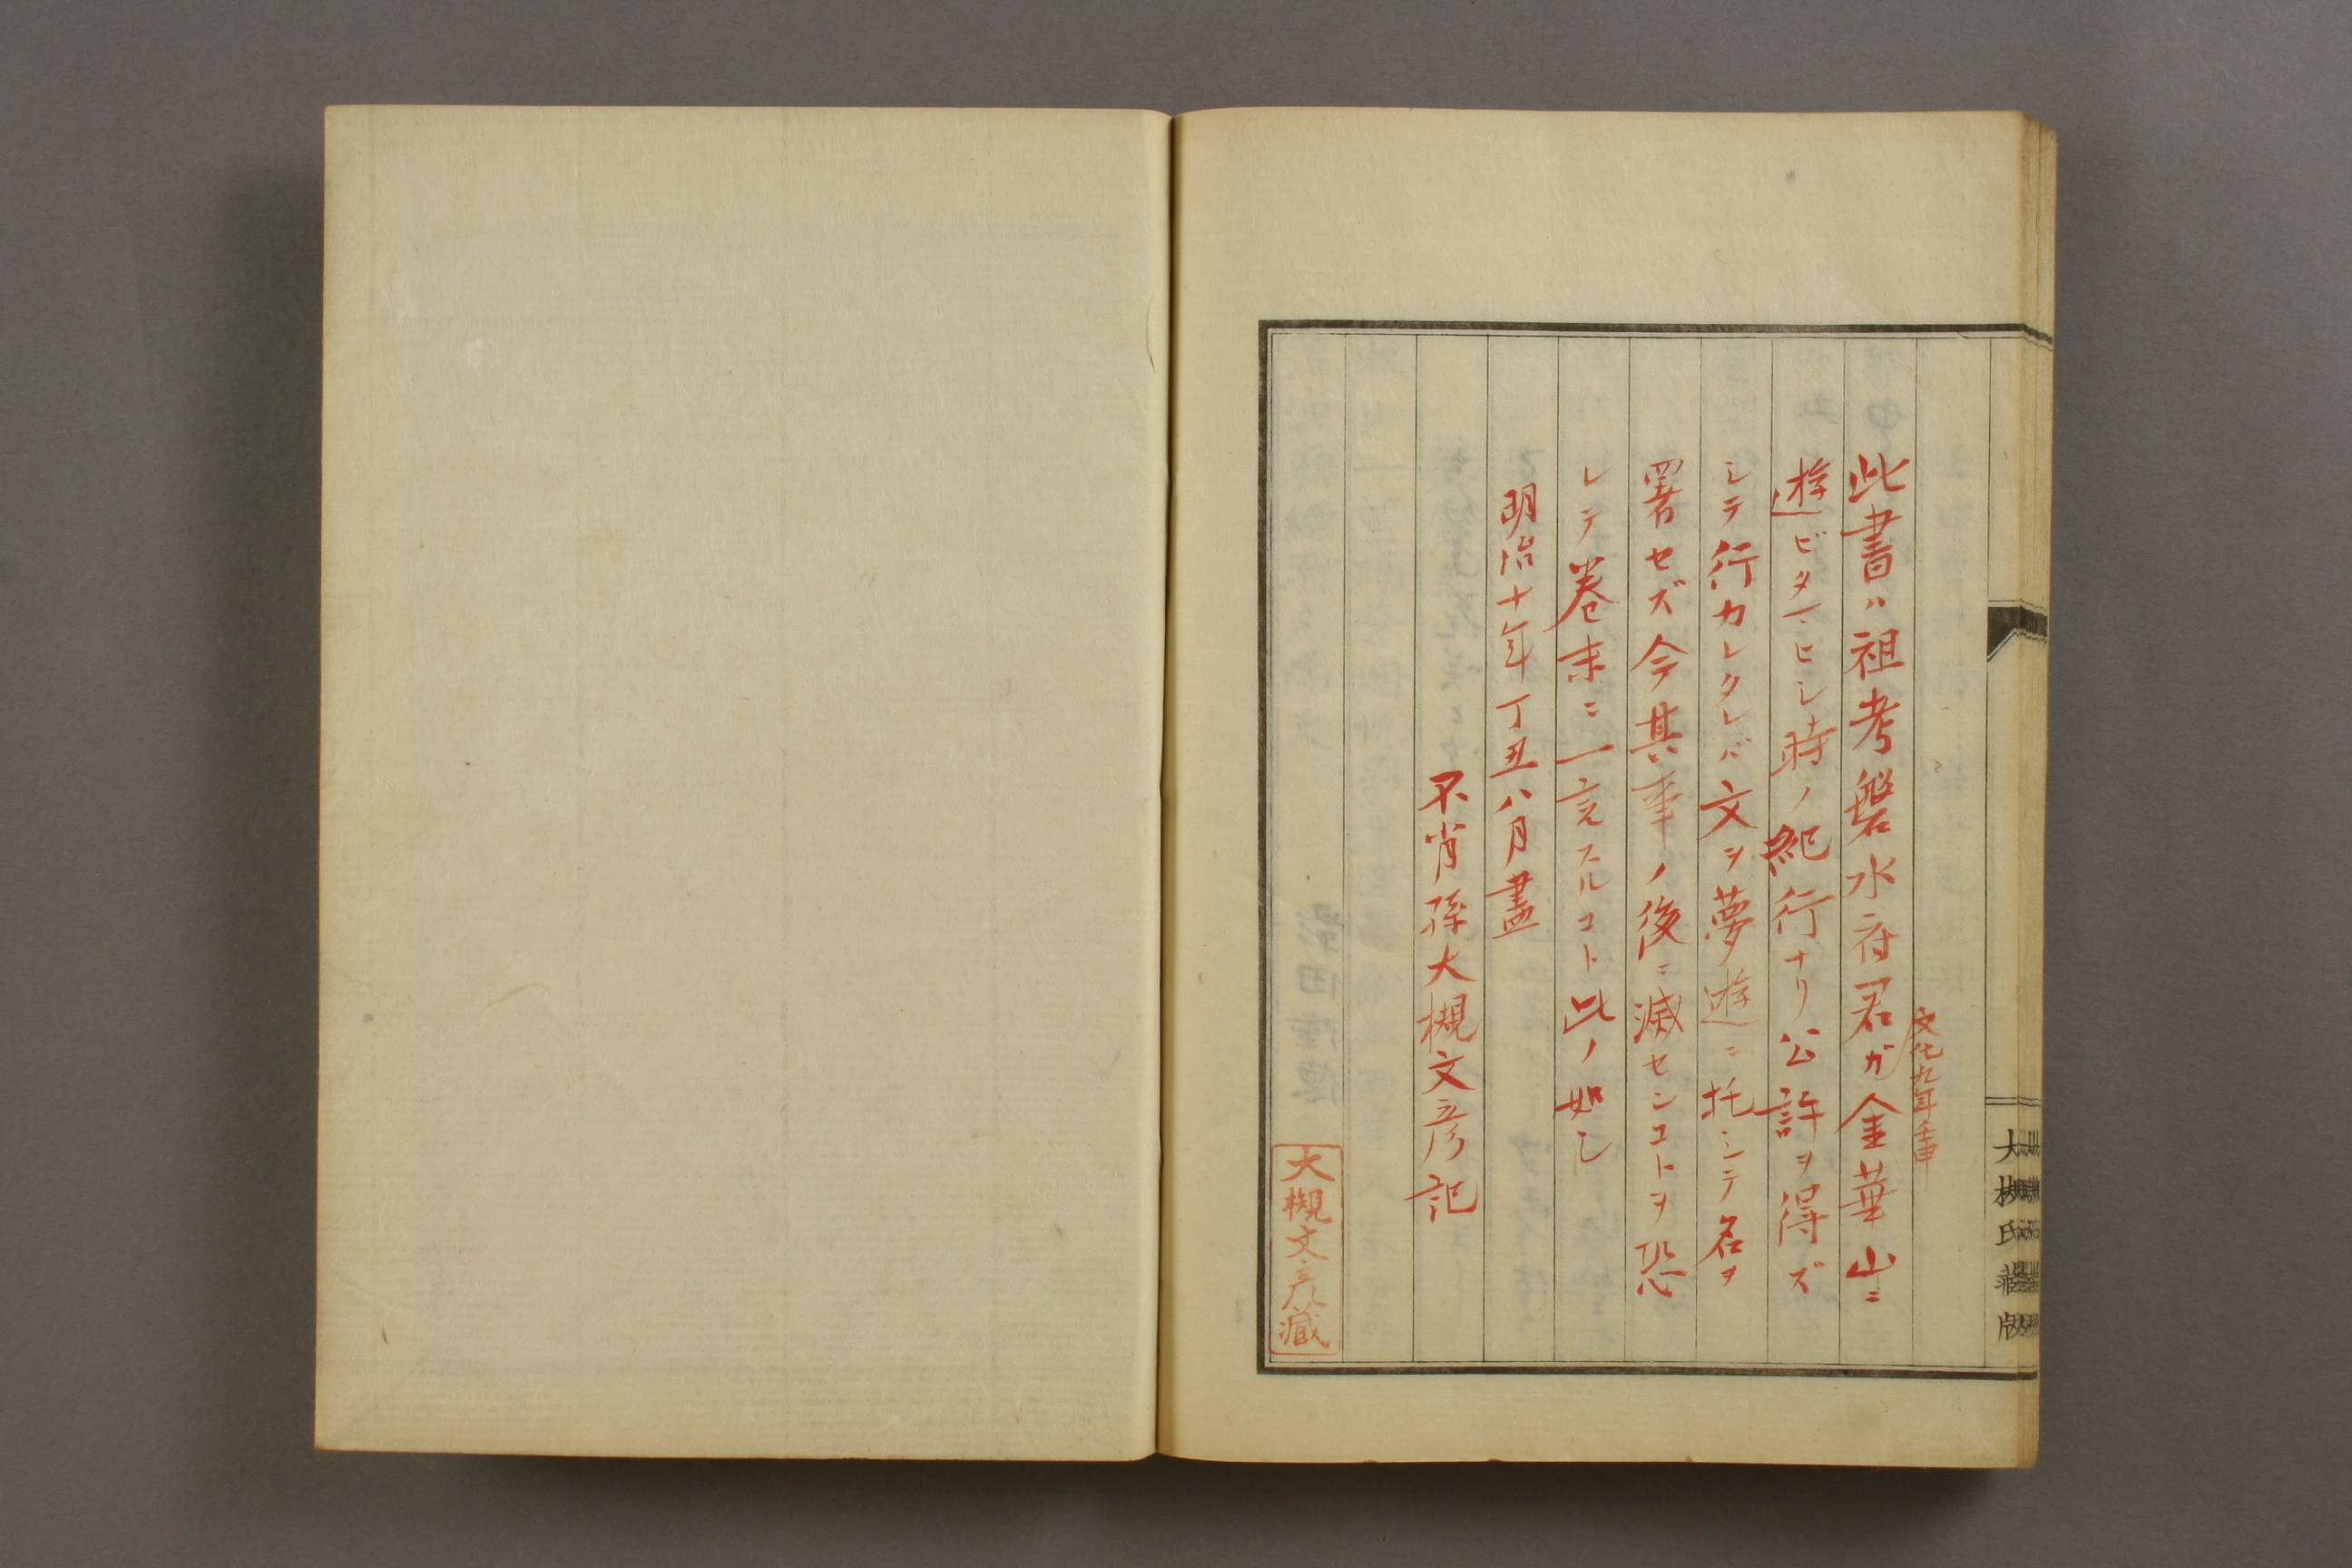 文化九年壬申
此書ハ祖考磐水府君ガ金華山ニ
遊ビタマヒシ時ノ紀行ナリ公許ヲ得ズ
シテ行カレタレバ文ヲ夢遊ニ托シテ名ヲ
署セズ今其事ノ後ニ滅センコトヲ恐
レテ巻末ニ一言スルコト此ノ如シ
明治十年丁丑八月盡
不肖孫大槻文彦記
大槻文彦蔵